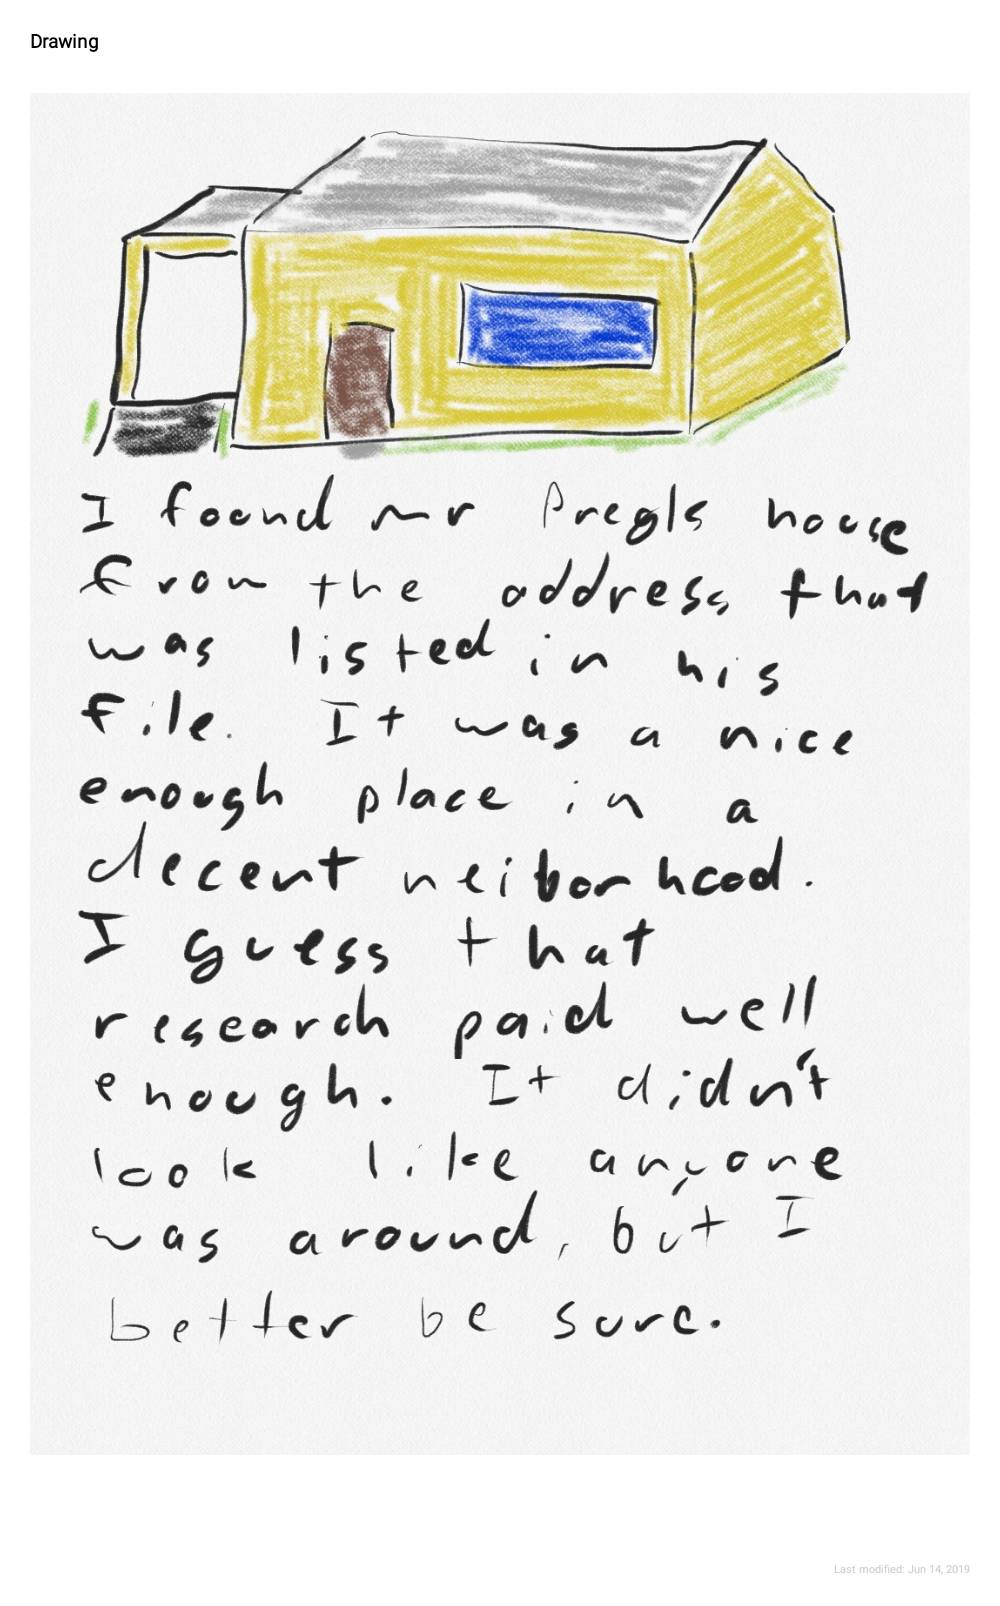 Drawing
I found mr Pregls house
from the address that
was listed in his
file. It was a nice
enough place in a
decent neiborhood.
I guess that
research paid well
enough. It didn't
look like anyone
was around, but I
better be sure.
Last modified: Jun 14, 2019